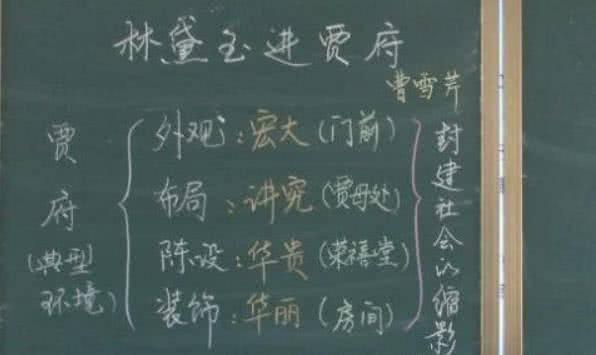 林黛玉进贾府
曹雪芹
贾府
(典型
环境)
外观:宏大(门前)
布局:讲究(贾母处)
陈设:华贵(荣禧堂)
装饰:华丽(房间)
封建社会的缩影